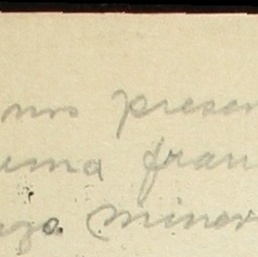 nos presen
uma fran
ega minor